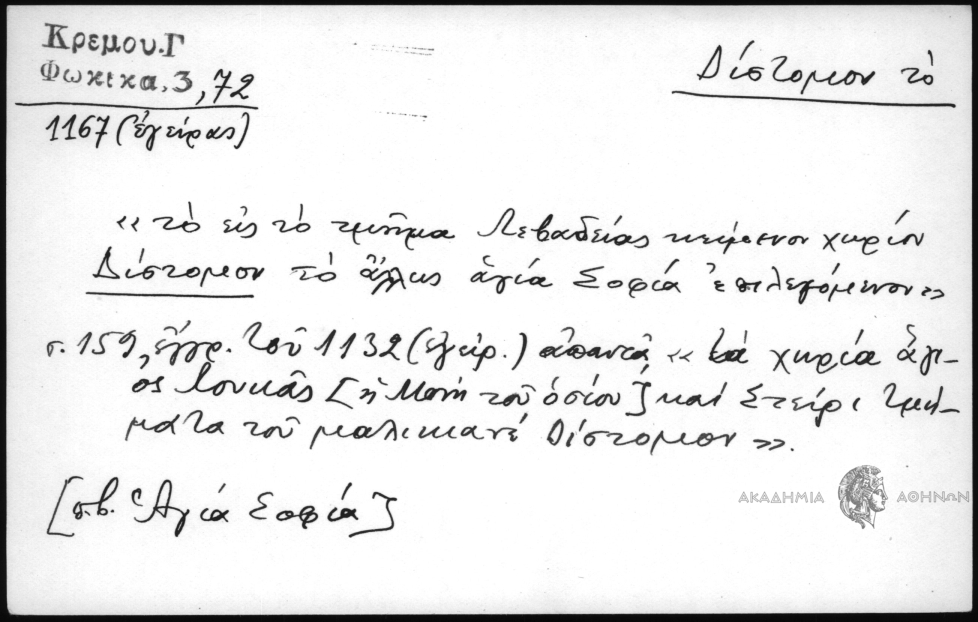 Κρεμου.Γ
Φωκικα.3,72
Δίστομον τὸ
1167 (ἐγείρας)
«τὸ εἰς τὸ τμῆμα Λεβαδείας κείμενον χωρίον
Δίστομον τὸ ἄλλως ἁγία Σοφία ἐπιλεγόμενον»
σ. 159, ἔγγρ. τοῦ 1132 (ἐγείρ.) ἀπαντᾷ «τὰ χωρία ἅγι-
ος Λουκᾶς [ἡ Μονὴ τοῦ ὁσίου] καὶ Στείρι τμή-
ματα τοῦ μαλικιανέ Δίστομον».
[π.β. Ἁγία Σοφία]
ΑΚΑΔΗΜΙΑ ΑΘΗΝΩΝ